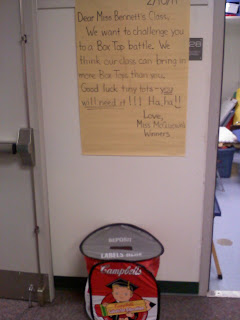 Dear Miss Bennett's Class,
We want to challenge you
to a Box Top battle. We
think our class can bring in
more Box Tops than you.
Good luck tiny tots - you
will need it!!! Ha, ha!!
Love,
Miss
Winners
DEPOSIT
LABELS
Campbell's